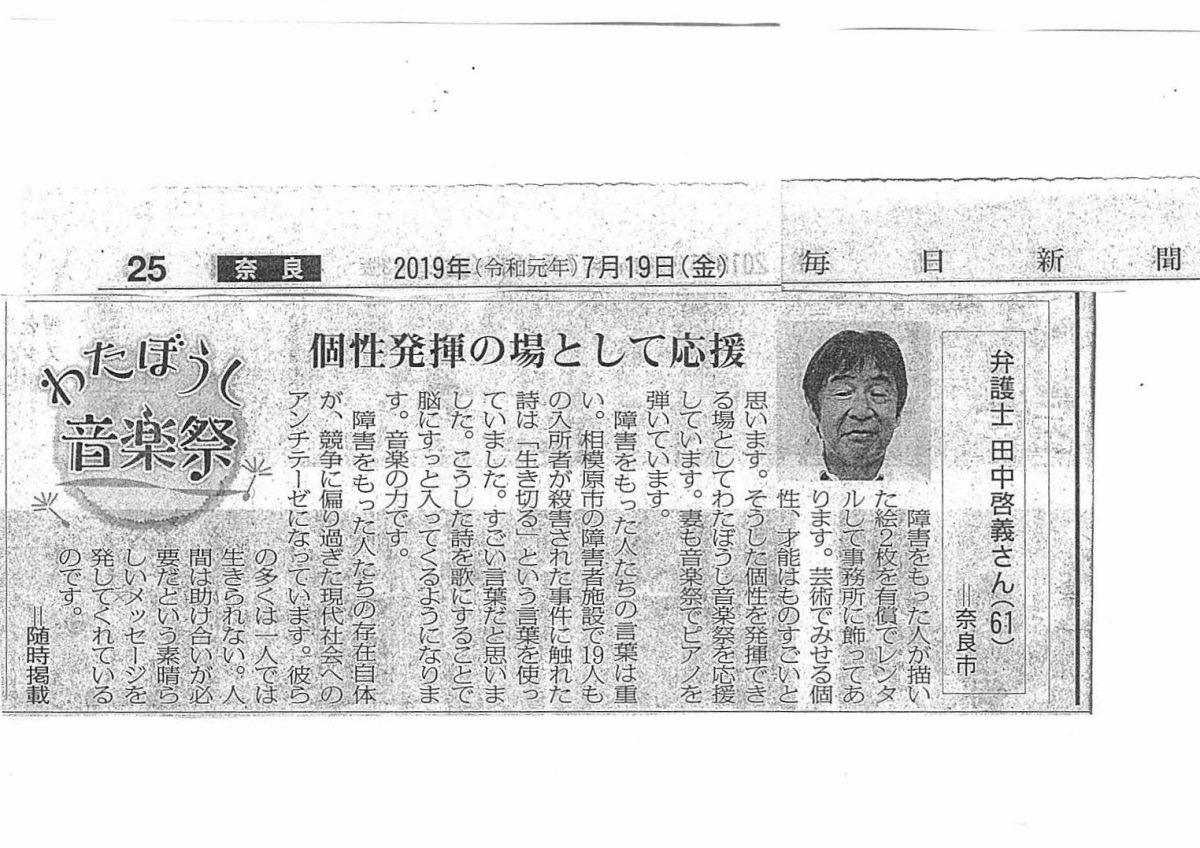 25 奈良 2019年(令和元年)7月19日(金) 毎日新聞
わたぼうし
音楽祭
個性発揮の場として応援
弁護士 田中啓義さん(61)
=奈良市
障害をもった人が描い
た絵2枚を有償でレンタ
ルして事務所に飾ってあ
ります。芸術でみせる個
性、才能はものすごいと
思います。そうした個性を発揮でき
る場としてわたぼうし音楽祭を応援
しています。妻も音楽祭でピアノを
弾いています。
障害をもった人たちの言葉は重
い。相模原市の障害者施設で19人も
の入所者が殺害された事件に触れた
詩は「生き切る」という言葉を使っ
ていました。すごい言葉だと思いま
した。こうした詩を歌にすることで
脳にすっと入ってくるようになりま
す。音楽の力です。
障害をもった人たちの存在自体
が、競争に偏り過ぎた現代社会への
アンチテーゼになっています。彼ら
の多くは一人では
生きられない。人
間は助け合いが必
要だという素晴ら
しいメッセージを
発してくれている
のです。
=随時掲載